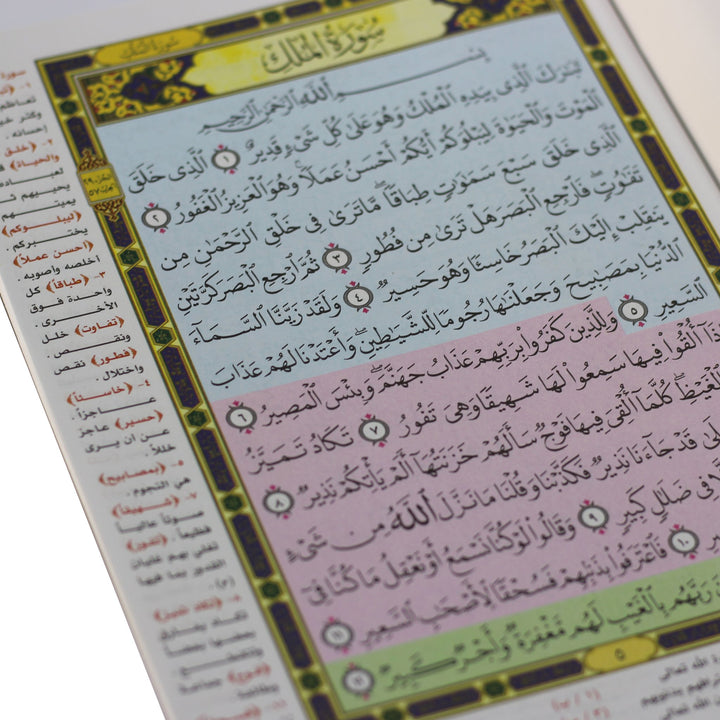 سُورَةُ المُلْكِ
بِسْمِ اللَّهِ الرَّحْمَٰنِ الرَّحِيمِ
تَبَٰرَكَ ٱلَّذِى بِيَدِهِ ٱلْمُلْكُ وَهُوَ عَلَىٰ كُلِّ شَىْءٍ قَدِيرٌ ١ ٱلَّذِى خَلَقَ
ٱلْمَوْتَ وَٱلْحَيَوٰةَ لِيَبْلُوَكُمْ أَيُّكُمْ أَحْسَنُ عَمَلًا ۚ وَهُوَ ٱلْعَزِيزُ ٱلْغَفُورُ ٢
ٱلَّذِى خَلَقَ سَبْعَ سَمَٰوَٰتٍ طِبَاقًا ۖ مَّا تَرَىٰ فِى خَلْقِ ٱلرَّحْمَٰنِ مِن
تَفَٰوُتٍ ۖ فَٱرْجِعِ ٱلْبَصَرَ هَلْ تَرَىٰ مِن فُطُورٍ ٣ ثُمَّ ٱرْجِعِ ٱلْبَصَرَ كَرَّتَيْنِ
يَنقَلِبْ إِلَيْكَ ٱلْبَصَرُ خَاسِئًا وَهُوَ حَسِيرٌ ٤ وَلَقَدْ زَيَّنَّا ٱلسَّمَآءَ
ٱلدُّنْيَا بِمَصَٰبِيحَ وَجَعَلْنَٰهَا رُجُومًا لِّلشَّيَٰطِينِ ۖ وَأَعْتَدْنَا لَهُمْ عَذَابَ
ٱلسَّعِيرِ ٥ وَلِلَّذِينَ كَفَرُوا۟ بِرَبِّهِمْ عَذَابُ جَهَنَّمَ ۖ وَبِئْسَ ٱلْمَصِيرُ ٦
ذَآ أُلْقُوا۟ فِيهَا سَمِعُوا۟ لَهَا شَهِيقًا وَهِىَ تَفُورُ ٧ تَكَادُ تَمَيَّزُ
ٱلْغَيْظِ ۖ كُلَّمَآ أُلْقِىَ فِيهَا فَوْجٌ سَأَلَهُمْ خَزَنَتُهَآ أَلَمْ يَأْتِكُمْ نَذِيرٌ ٨
لَىٰ قَدْ جَآءَنَا نَذِيرٌ فَكَذَّبْنَا وَقُلْنَا مَا نَزَّلَ ٱللَّهُ مِن شَىْءٍ
لَّا فِى ضَلَٰلٍ كَبِيرٍ ٩ وَقَالُوا۟ لَوْ كُنَّا نَسْمَعُ أَوْ نَعْقِلُ مَا كُنَّا فِىٓ
١٠ فَٱعْتَرَفُوا۟ بِذَنۢبِهِمْ فَسُحْقًا لِّأَصْحَٰبِ ٱلسَّعِيرِ ١١
رَبَّهُم بِٱلْغَيْبِ لَهُم مَّغْفِرَةٌ وَأَجْرٌ كَبِيرٌ ١٢
٥
﴿خلق
والحياة﴾
يحييهم
يميتهم
﴿ليبلوكم﴾
يختبركم .
﴿أحسن عملاً﴾
اخلصه واصوبه .
٣- ﴿طباقاً﴾ كل
واحدة فوق
الأخرى .
﴿تفاوت﴾ خلل
ونقص .
﴿فطور﴾ نقص
واختلال .
٤- ﴿خاسئاً﴾
عاجزاً .
﴿حسير﴾ عاجز
عن ان يرى
خللاً .
٥- ﴿بمصابيح﴾
هي النجوم .
٧- ﴿شهيقاً﴾
صوتاً عالياً
فظيعاً . ﴿تفور﴾
تغلي بهم غليان
القدور بما فيها